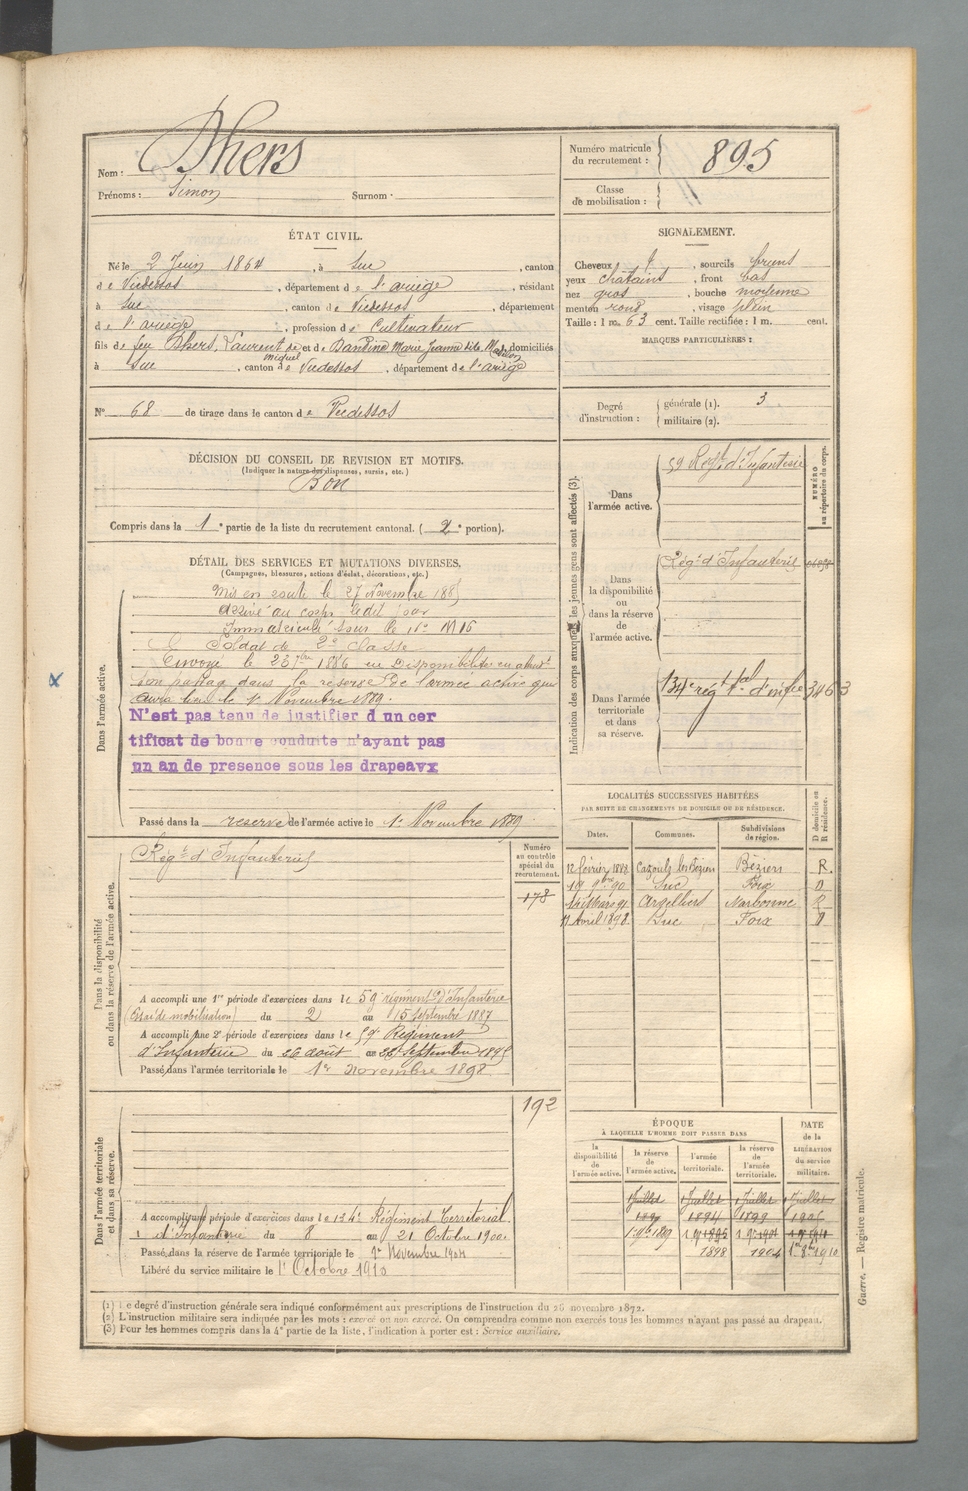 Nom : Dhers
Prénoms : Simon Surnom :
Numéro matricule du recrutement : 895
Classe de mobilisation :
ÉTAT CIVIL.
Né le 2 Juin 1864, à Suc, canton
de Vicdessos, département de l'ariège, résidant
à Suc, canton de Vicdessos, département
de l'ariège, profession de Cultivateur
fils de feu Dhers, Laurent et de Dandine Marie Jeanne dite domiciliés
miquel
à Suc, canton de Vicdessos, département de l'ariège
N° 68 de tirage dans le canton de Vicdessos
SIGNALEMENT.
Cheveux, sourcils bruns
yeux châtains, front bas
nez gros, bouche moyenne
menton rond, visage plein
Taille : 1 m. 63 cent. Taille rectifiée : 1 m. cent.
MARQUES PARTICULIÈRES :
Degré d'instruction : générale (1). 3
militaire (2).
DÉCISION DU CONSEIL DE REVISION ET MOTIFS.
(Indiquer la nature des dispenses, sursis, etc.)
Bon
Compris dans la 1e partie de la liste du recrutement cantonal. (2e portion).
DÉTAIL DES SERVICES ET MUTATIONS DIVERSES.
(Campagnes, blessures, actions d'éclat, décorations, etc.)
Dans l'armée active.
Mis en route le 27 Novembre 1885
arrivé au corps ledit jour
Immatriculé sous le N°
Soldat de 2e classe
Envoyé le 23 1886 en Disponibilité en
son passage dans la réserve De l'armée active qui
aura lieu le 1er Novembre 1889.
N'est pas tenu de justifier d un cer
tificat de bonne conduite n'ayant pas
un an de presence sous les drapeaux
Passé dans la reserve de l'armée active le 1er Novembre 1889
Indication des corps auxquels les jeunes gens sont affectés (3).
NUMÉRO au répertoire du corps.
Dans l'armée active. 59 Regt. d'Infanterie
Dans la disponibilité ou dans la réserve de l'armée active. Régt d'Infanterie
Dans l'armée territoriale et dans sa réserve. 134e régt tal d'infie 3463
LOCALITÉS SUCCESSIVES HABITÉES
PAR SUITE DE CHANGEMENTS DE DOMICILE OU DE RÉSIDENCE.
Dates. Communes. Subdivisions de région. D domicile ou R résidence.
12 février Cazouls les Béziers Béziers R.
19 9bre 90 Suc Foix D
Mars 91 Argelliers Narbonne R
17 Avril 1898 Suc Foix D
Dans la disponibilité ou dans la réserve de l'armée active.
Régt d'Infanterie
Numéro au contrôle spécial du recrutement.
178
A accompli une 1re période d'exercices dans le 59 régiment d'Infanterie
(Essai de mobilisation) du 2 au 15 septembre 1887
A accompli une 2e période d'exercices dans le 59e Régiment
d'Infanterie du 26 août au 22 septembre
Passé dans l'armée territoriale le 1er novembre 1898
Dans l'armée territoriale et dans sa réserve.
192
A accompli une période d'exercices dans le 134e Régiment Territorial
d'Infanterie du 8 au 21 Octobre 1900
Passé dans la réserve de l'armée territoriale le 1er Novembre 1904
Libéré du service militaire le 1er Octobre 1910
ÉPOQUE
À LAQUELLE L'HOMME DOIT PASSER DANS
la disponibilité de l'armée active. la réserve de l'armée active. l'armée territoriale. la réserve de l'armée territoriale.
DATE de la LIBÉRATION du service militaire.
1 Juillet 1 Juillet 1 Juillet 1 Juillet
1894 1899
1898 1904 1910
(1) Le degré d'instruction générale sera indiqué conformément aux prescriptions de l'instruction du 26 novembre 1872.
(2) L'instruction militaire sera indiquée par les mots : exercé ou non exercé. On comprendra comme non exercés tous les hommes n'ayant pas passé au drapeau.
(3) Pour les hommes compris dans la 4e partie de la liste, l'indication à porter est : Service auxiliaire.
Guerre. — Registre matricule.